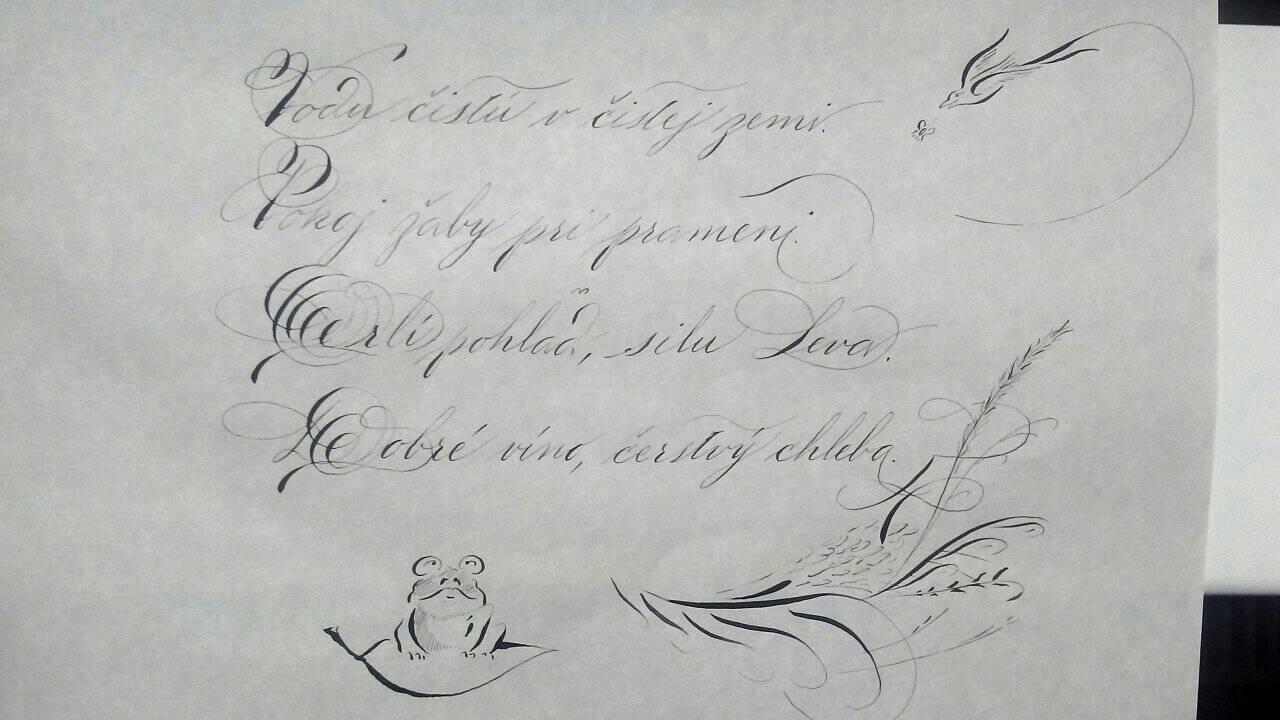 Vodu čistú v čistej zemi.
Pokoj žaby pri prameni.
pohľad, silu Leva.
Dobré víno, čerstvý chleba.